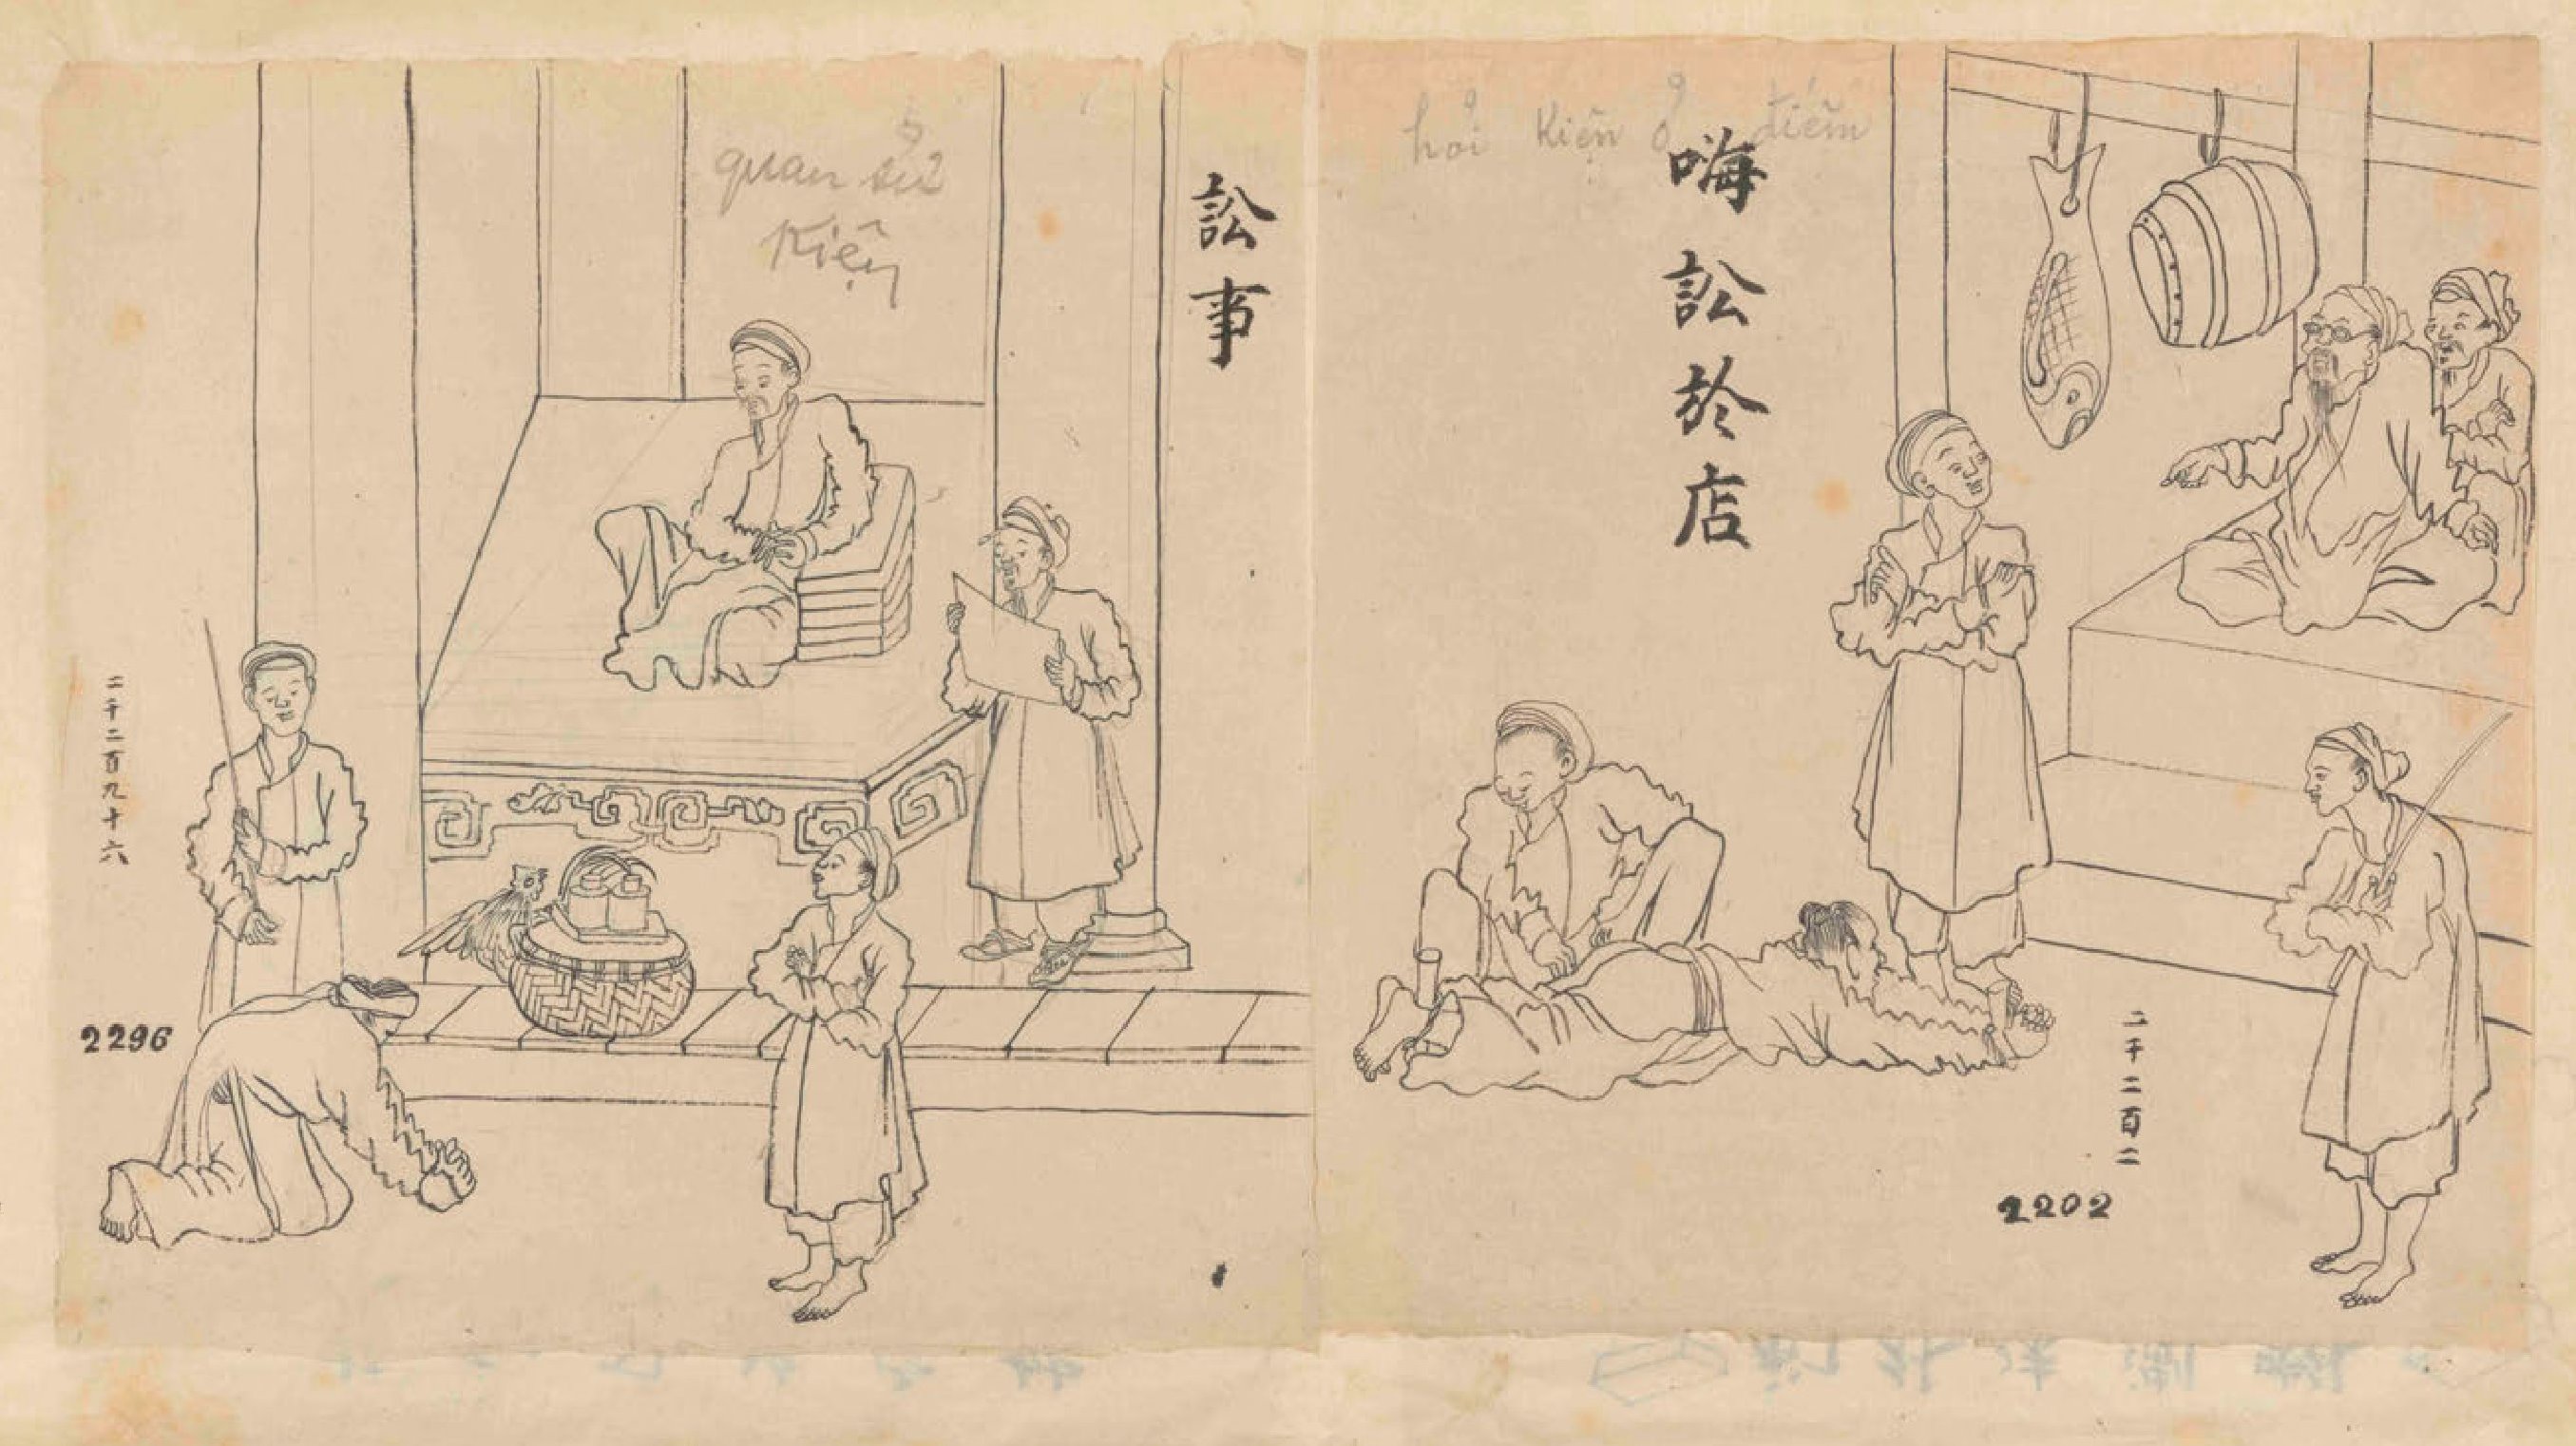 quan sử
Kiện
訟事
二千二百九十六
2296
hỏi Kiện ở điếm
嗨訟於店
二千二百二
2202